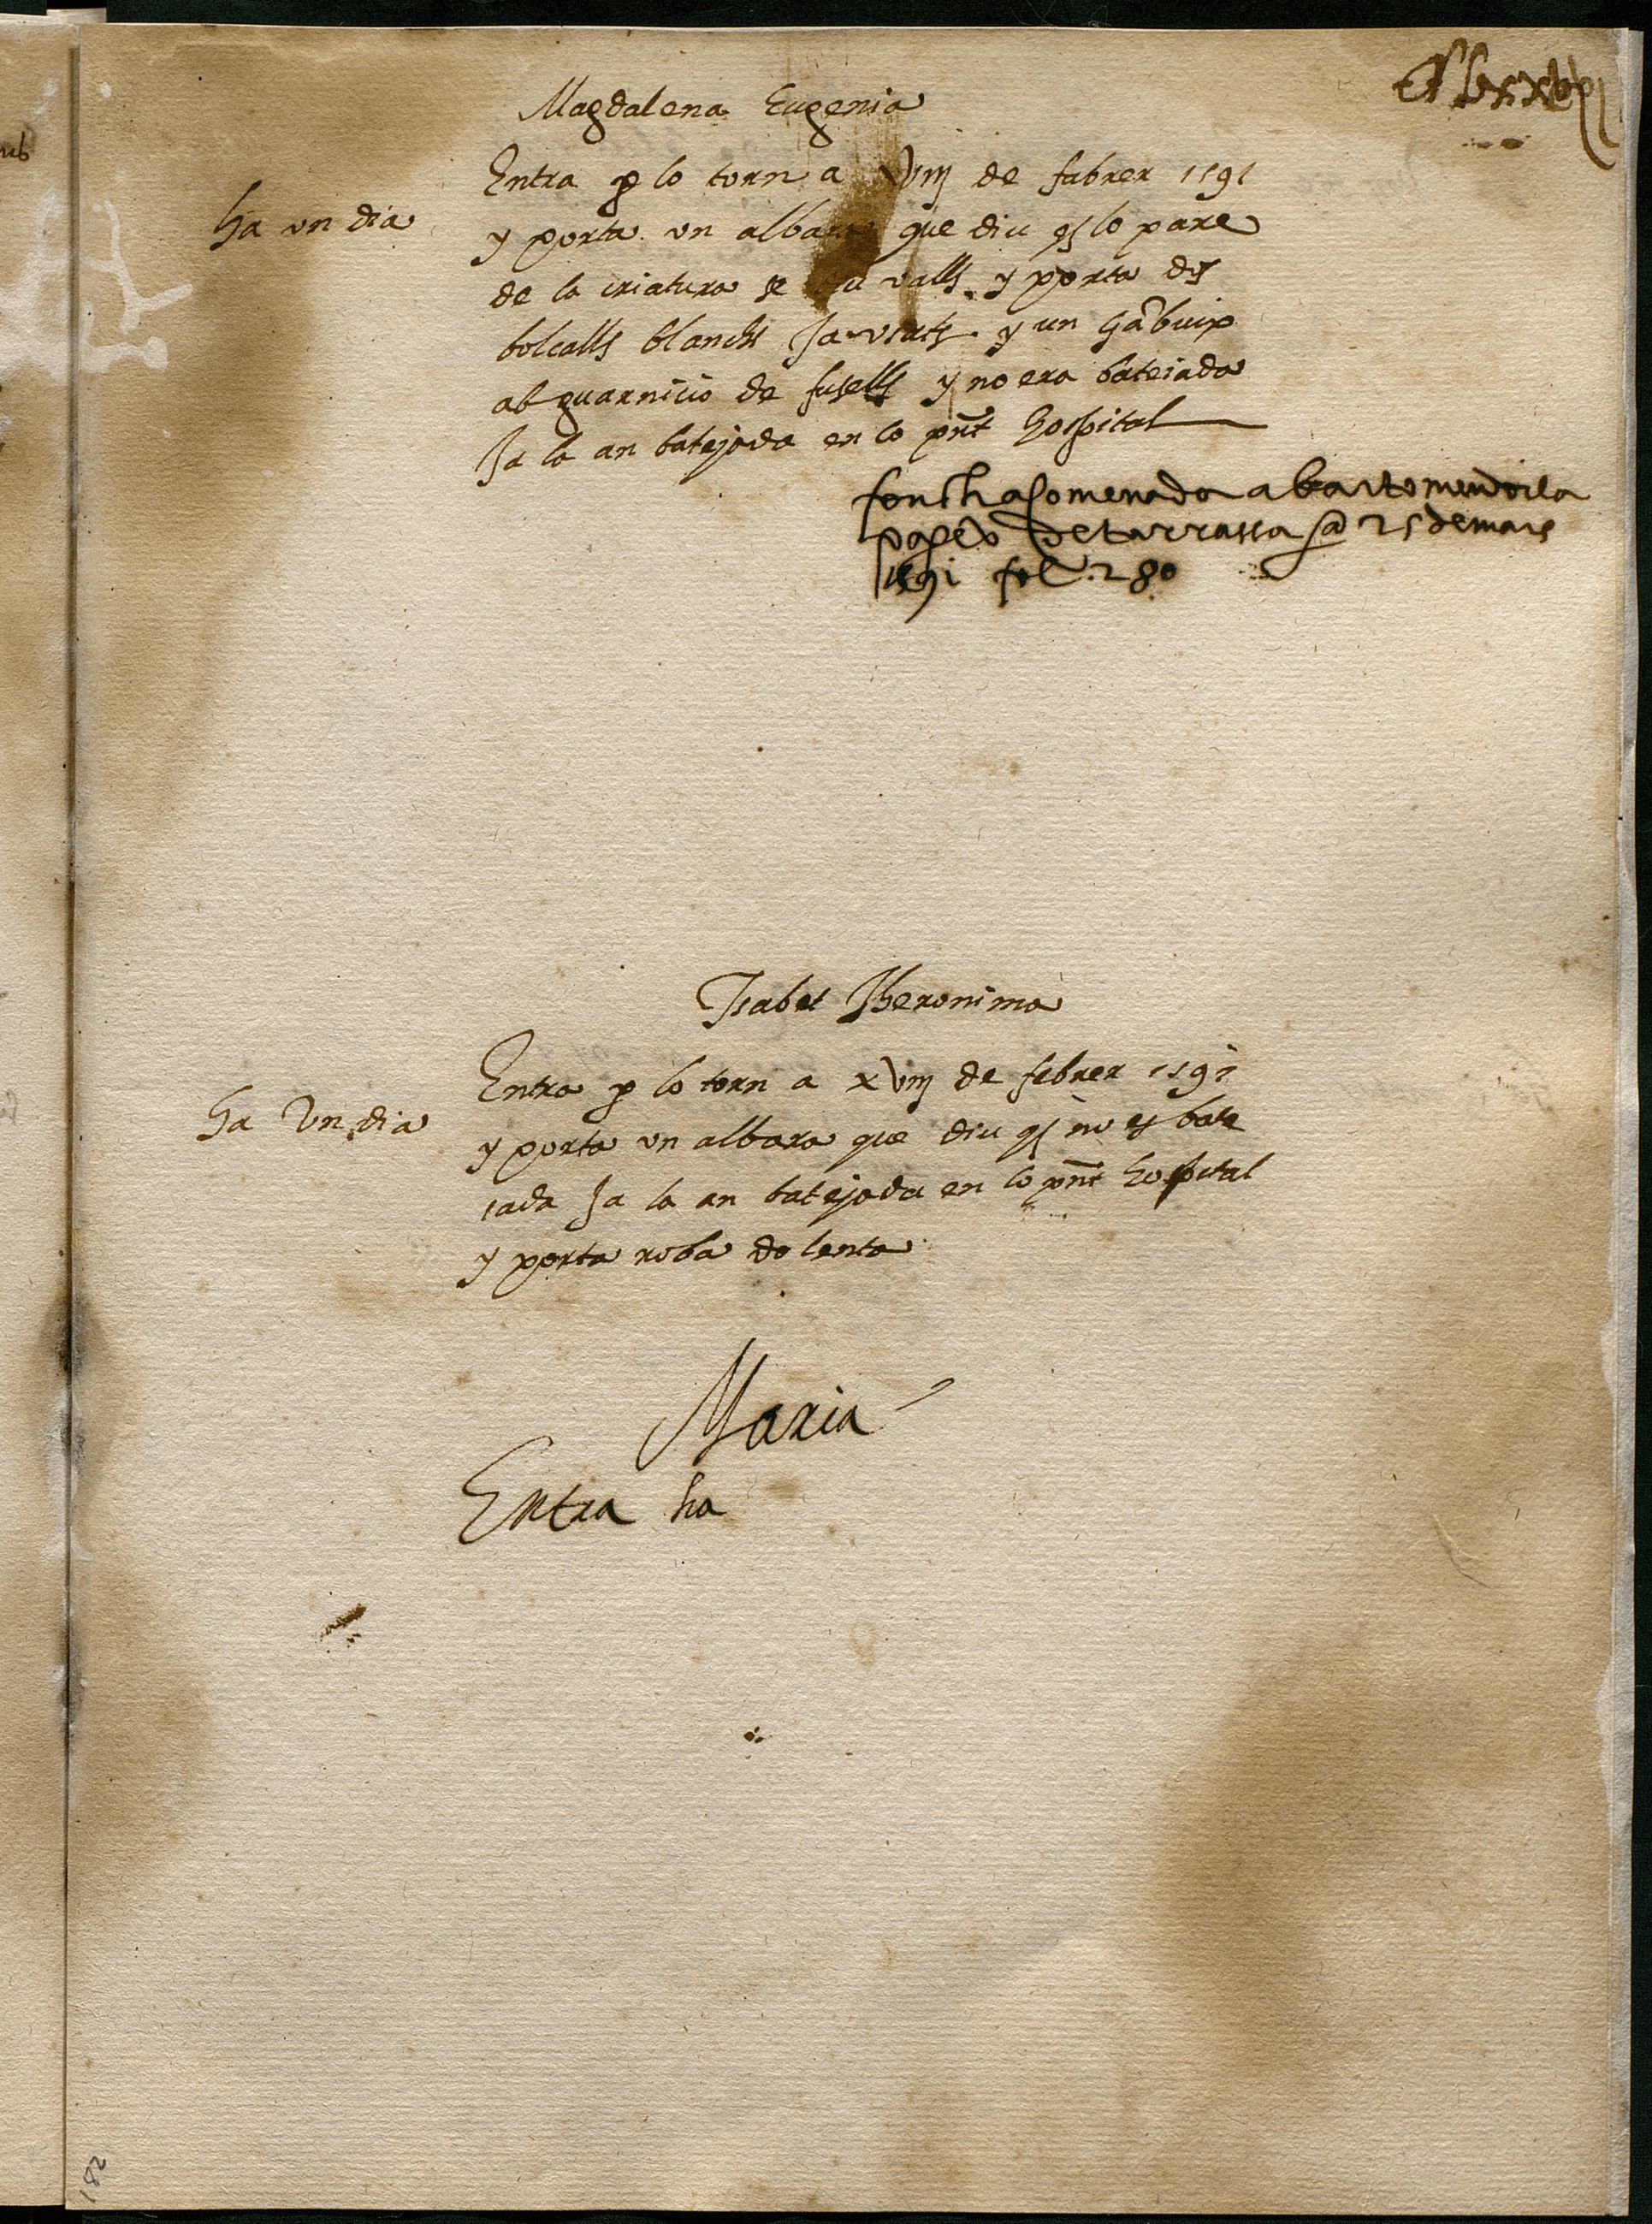 Magdalena Eugenia
Entra p lo torn a xviij de febrer 1591
ha vn dia
y porta vn albara que diu q lo pare
de la criatura se diu valls y porta dos
bolcalls blanchs ja vsats y un gābuix
ab guarnicio de fusells y no era bateiada
Ja la an batejada en lo pnt hospital
fonch acomenada a bartomeu
de tarrassa a 25 de mars
1591 fol. 280
Isabet Jheronima
Entra p lo torn a xviij de febrer 1591
ha Vn dia
y porta vn albara que diu q no es bate
iada Ja la an batejada en lo pnt hospital
y porta roba dolenta
Maria
Entra ha
182